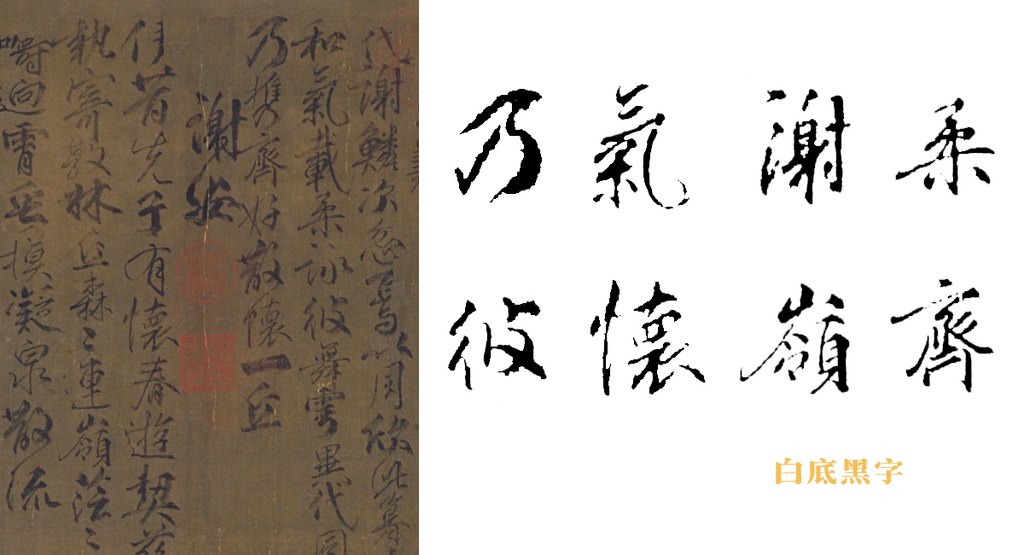 代謝鱗次忽焉以周欣此暮
和氣載柔詠彼舞雩異代同
乃攜齊好散懷一丘
謝安
伊昔先子有懷春遊契茲
執寄敖林丘森〻連嶺茫〻
疇迥霄垂凝泉散流
乃氣謝柔
彼懷嶺齊
白底黑字